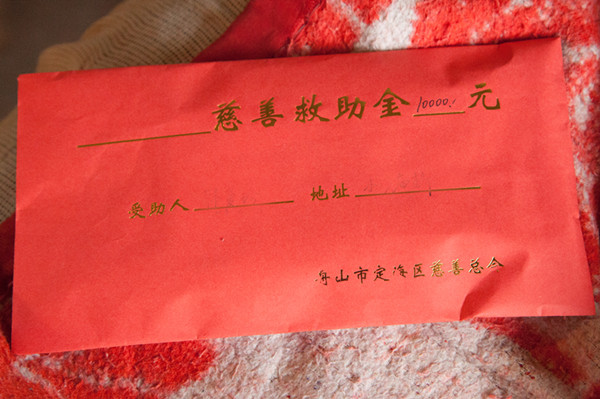 慈善救助金10000.元
受助人 地址
舟山市定海区慈善总会